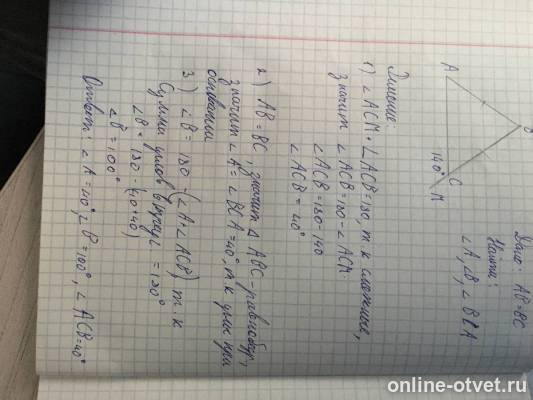 Дано: AB=BC
Найти:
∠A, ∠B, ∠BCA
A
B
C
140°
M
Решение:
1) ∠ACM+∠ACB=180, т.к смежные,
значит ∠ACB=180-∠ACM.
∠ACB=180-140
∠ACB=40°
2) AB=BC, значит Δ ABC-равнобедр,
значит ∠A=∠BCA=40°, т.к углы при
основании
3) ∠B=180-(∠A+∠ACB) т.к
Сумма углов = 180°
∠B=180-(40+40)
∠B=100°
Ответ: ∠A=40°, ∠B=100°, ∠ACB=40°
online-otvet.ru